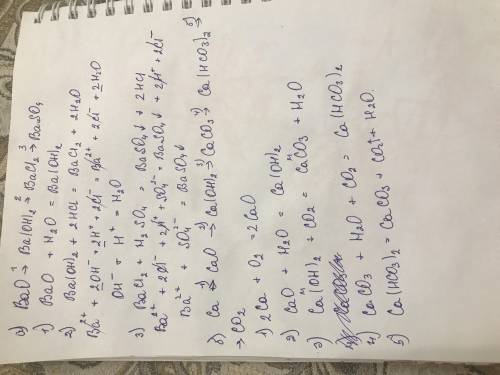 а) BaO →¹ Ba(OH)₂ →² BaCl₂ →³ BaSO₄
1) BaO + H₂O = Ba(OH)₂
2) Ba(OH)₂ + 2HCl = BaCl₂ + 2H₂O
Ba²⁺ + 2OH⁻ + 2H⁺ + 2Cl⁻ = Ba²⁺ + 2Cl⁻ + 2H₂O
OH⁻ + H⁺ = H₂O
3) BaCl₂ + H₂SO₄ = BaSO₄↓ + 2HCl
Ba²⁺ + 2Cl⁻ + 2H⁺ + SO₄²⁻ = BaSO₄↓ + 2H⁺ + 2Cl⁻
Ba²⁺ + SO₄²⁻ = BaSO₄↓
б) Ca →¹⁾ CaO →²⁾ Ca(OH)₂ →³⁾ CaCO₃ →⁴⁾ Ca(HCO₃)₂ →⁵⁾
→ CO₂
1) 2Ca + O₂ = 2CaO
2) CaO + H₂O = Ca(OH)₂
3) Ca(OH)₂ + CO₂ = CaCO₃ + H₂O
4) CaCO₃ + H₂O + CO₂ = Ca(HCO₃)₂
5) Ca(HCO₃)₂ = CaCO₃ + CO₂↑ + H₂O.